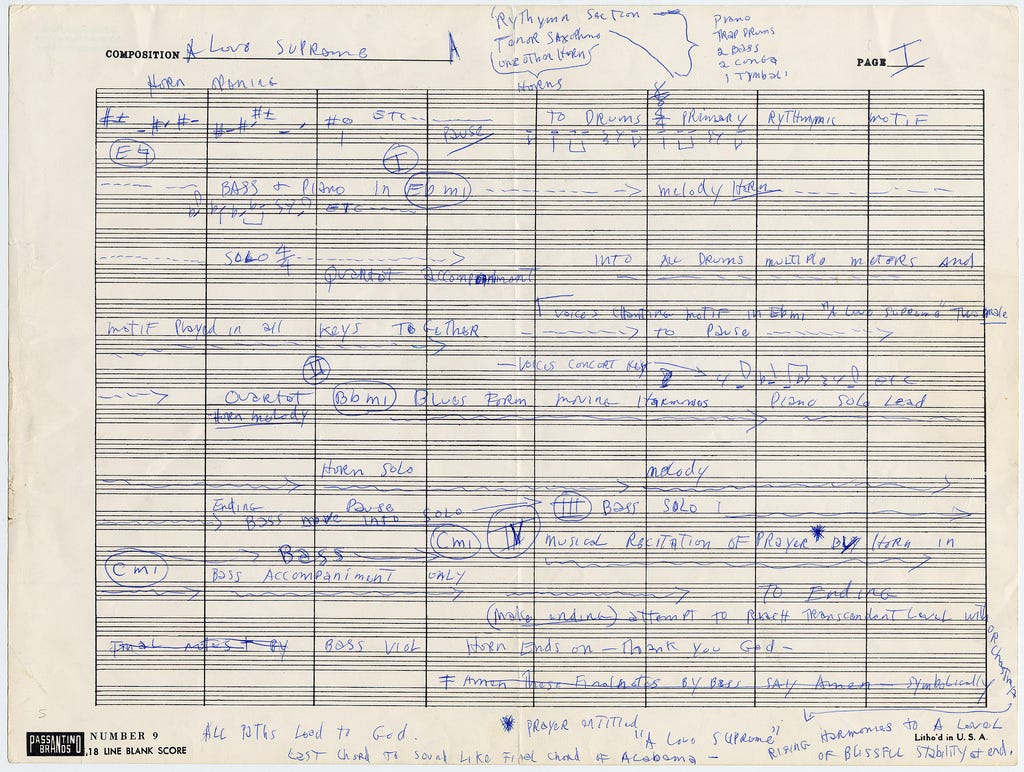 COMPOSITION A Love Supreme
"Rythymn Section
Tenor Saxophone
(one other Horn)
Horns
Piano
Trap Drums
2 Bass
2 Conga
1 Tymbali
PAGE I
Horn opening
etc
Pause
TO DRUMS PRIMARY RYTHMIC MOTIF
I
Bass & Piano in Ebmi melody Horn
etc
Solo 4/4 INTO ALL DRUMS MULTIPLE METERS AND
Quartet Accompaniment
voices chanting motif in Ebmi "A Love Supreme" Two male
motif Played in all keys Together to Pause
voices concert key etc
II
Quartet Bbmi Blues Form moving Harmonies Piano Solo Lead
Horn melody
Horn Solo melody
Ending Pause III Bass Solo
Bass move into solo
Cmi IV MUSICAL RECITATION OF PRAYER * BY HORN IN
Bass
Cmi Bass Accompaniment only
To Ending
(make ending) attempt to Reach Transcendent Level with
orchestra
Final notes by Bass Viol Horn Ends on — Thank You God —
Amen these Final notes by Bass say Amen — symbolically
Rising Harmonies to A Level
of Blissful Stability at end.
5
PASSANTINO BRANDS NUMBER 9
18 LINE BLANK SCORE
All Paths Lead to God.
* Prayer entitled "A Love Supreme"
Last chord to sound like Final chord of Alabama —
Litho'd in U. S. A.